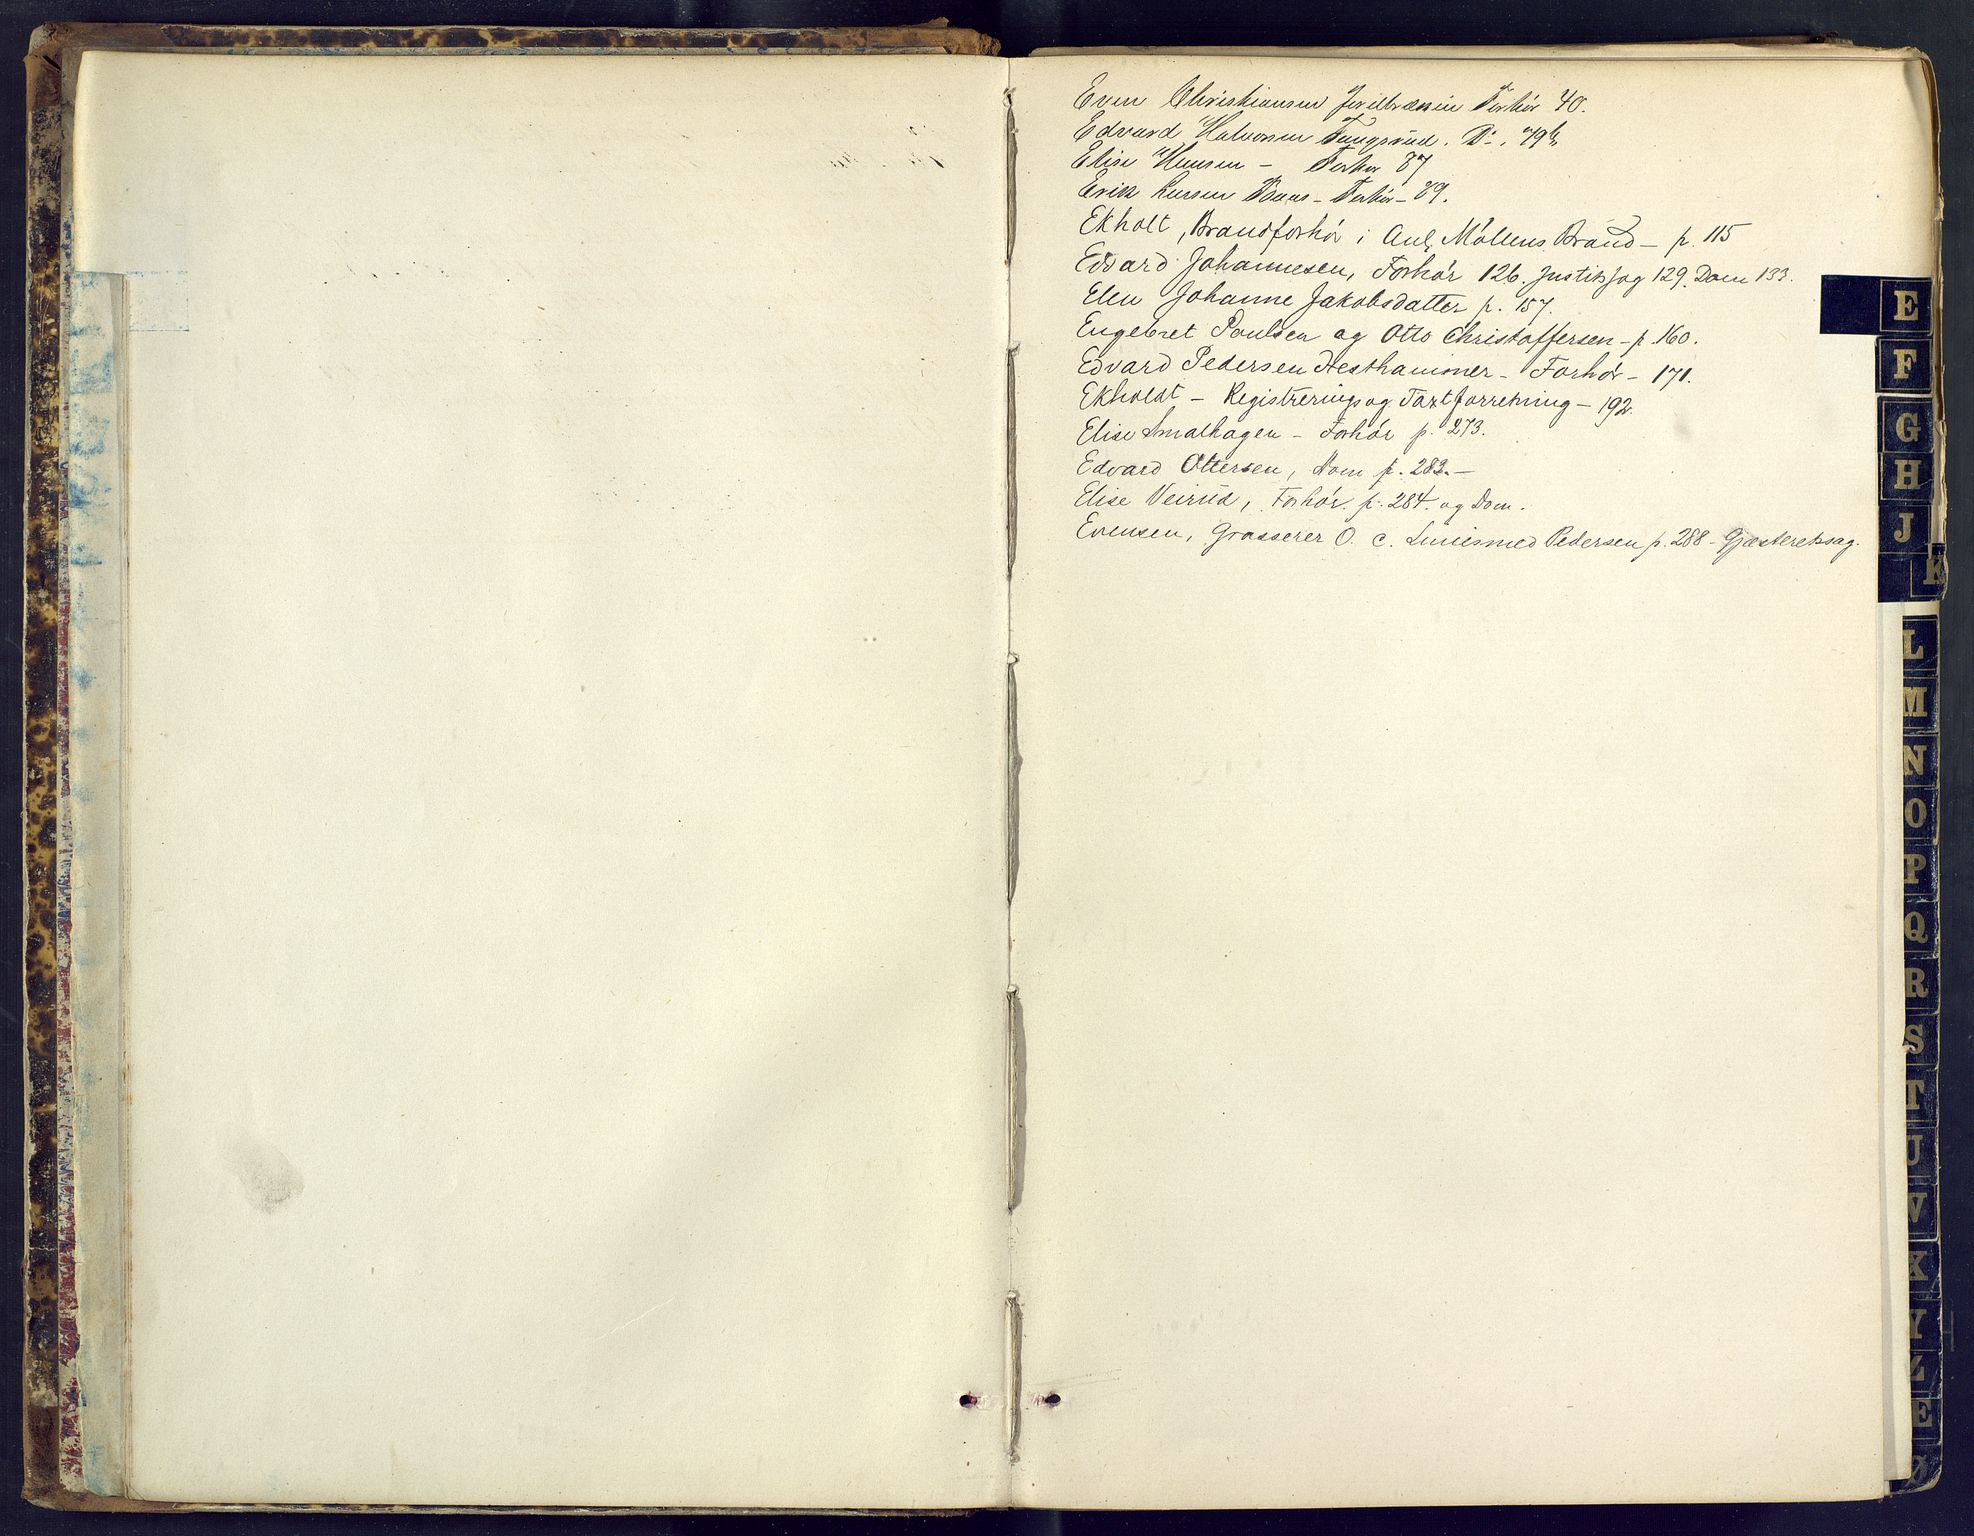 Even Christiansen Forhör 40.
Edvard Halvorsen Tungsrud. Do. 49
Elise Hansen – Forhör 87
Erik Larsen Baas – Forhör – 89.
Ekholt, Brandforhör i Anl. Möllens Brand – p. 115
Edvard Johannesen, Forhör 126. Justitssag 129. Dom 133.
Elen Johanne Jakobsdatter p. 157.
Engebret Poulsen og Otto Christoffersen – p. 160.
Edvard Pedersen Hesthammer – Forhör – 171.
Ekholdt – Registrerings og Taxtforretning – 192.
Elise Smalhagen – Forhör p. 273.
Edvard Ottersen, Dom p. 283. –
Elise Veirud, Forhör. p. 284. og Dom.
Evensen, Grosserer O. c. Pedersen p. 288 – Gjæsteretssag.
E
F
G
H
J
K
L
M
N
O
P
Q
R
S
T
U
V
X
Y
Z
Æ
Ø